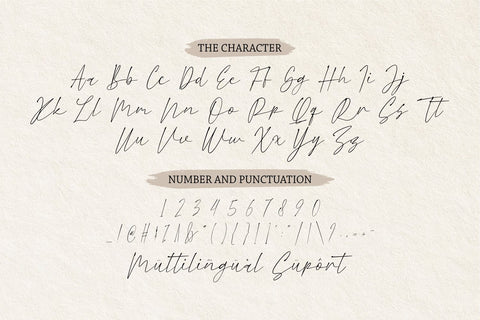 THE CHARACTER
Aa Bb Cc Dd Ee Ff Gg Hh Ii Jj
Kk Ll Mm Nn Oo Pp Qq Rr Ss Tt
Uu Vv Ww Xx Yy Zz
NUMBER AND PUNCTUATION
1 2 3 4 5 6 7 8 9 0
Müttilingüàl Supôrt